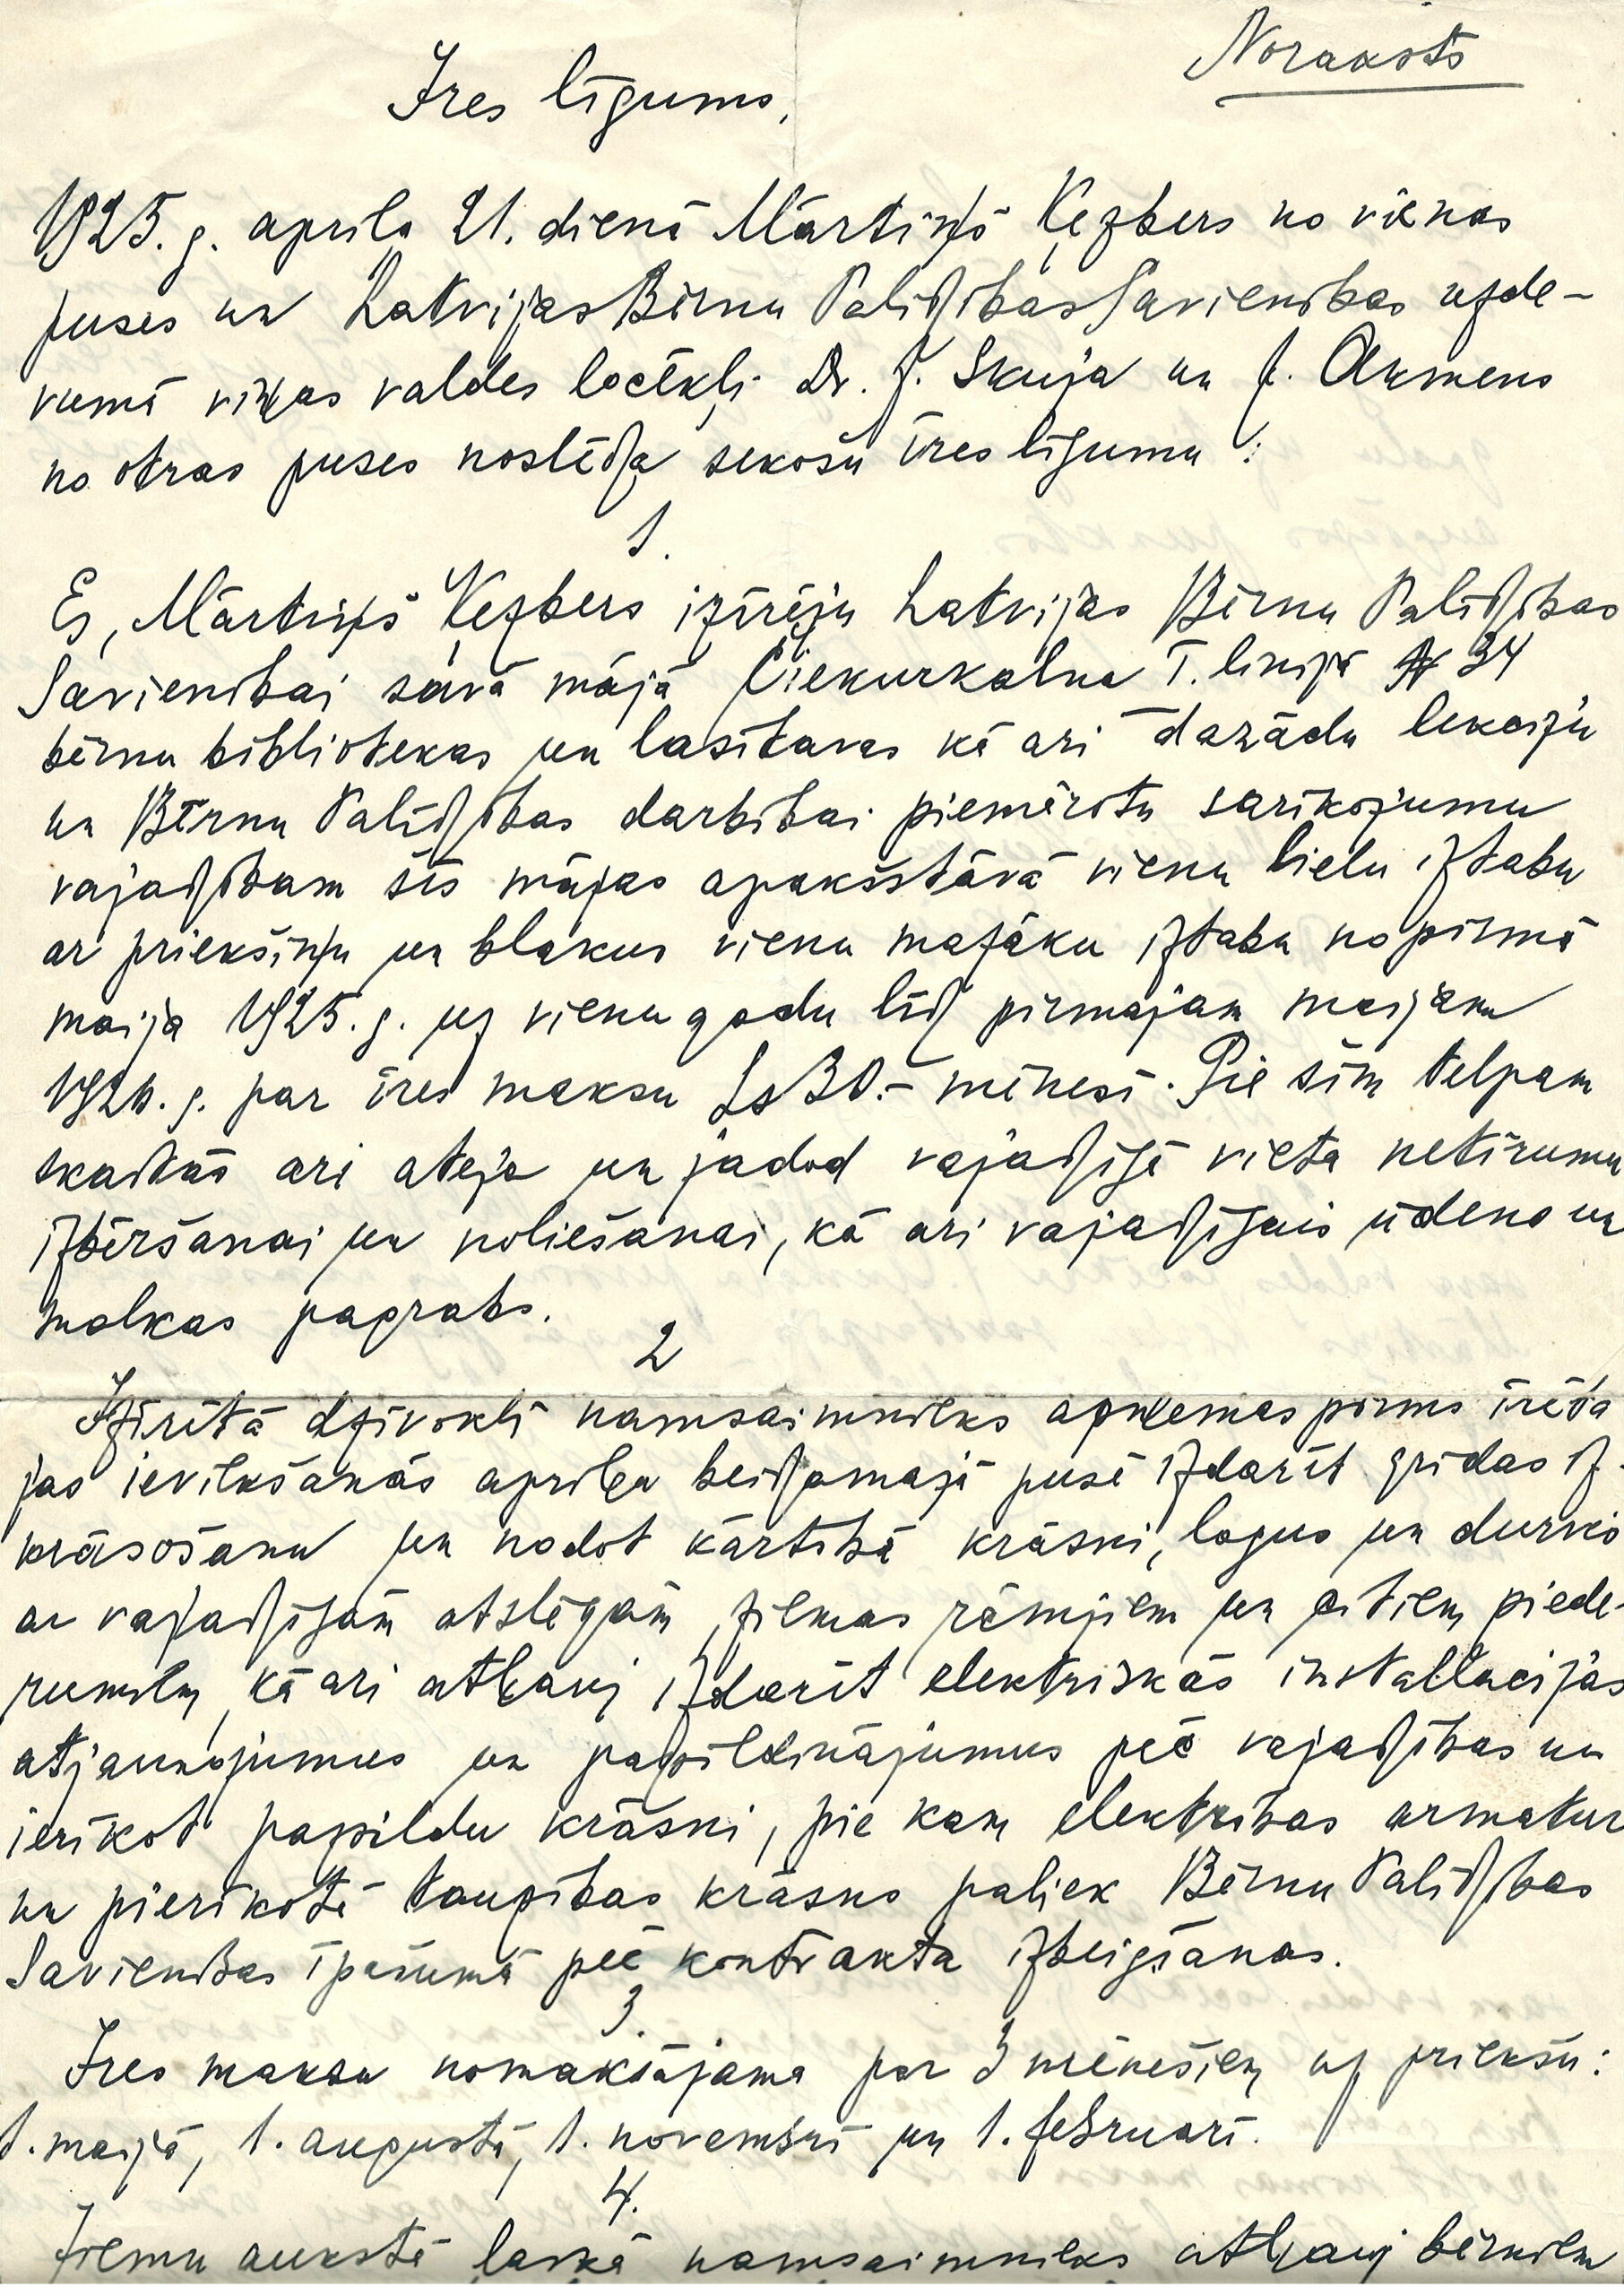 Noraksts
Īres līgums.
1925. g. aprīļa 21. dienā Mārtiņš Ķezbers no vienas
puses un Latvijas Bērnu Palīdzības Savienības uzde-
vumā viņas valdes locekļi Dr. J. Skuja un J. Akmens
no otras puses noslēdza sekošu īres līgumu:
1.
Es, Mārtiņš Ķezbers izīrēju Latvijas Bērnu Palīdzības
Savienībai savā mājā Čiekurkalna I. līnijā № 34
bērnu bibliotekas un lasītavas kā arī dažādu lekciju
un Bērnu Palīdzības darbībai piemērotu sarīkojumu
vajadzībam šīs mājas apakšstāvā vienu lielu istabu
ar priekšiņu un blakus vienu mazāku istabu no pirmā
maija 1925. g. uz vienu gadu līdz pirmajam maijam
1926. g. par īres maksu Ls 30.- mēnesī. Pie šīm telpam
skaitās arī ateja un jādod vajadzīgā vieta netīrumu
izbēršanai un noliešanai, kā arī vajadzīgais ūdens un
malkas pagrabs.
2
Izīrētā dzīvoklī namsaimnieks apņemas pirms īrētā-
jas ievilkšanās aprīļa beidzamajā pusē izdarīt grīdas iz-
krāsošanu un nodot kārtībā krāsni, logus un durvis
ar vajadzīgām atslēgām, ziemas rāmjiem un citiem piede-
rumiem, kā arī atļauj izdarīt elektriskās installacijas
atjaunojumus un papildinājumus pēc vajadzības un
ierīkot papildu krāsni, pie kam elektrības armatur
un pierīkotā taupības krāsns paliek Bērnu Palīdzības
Savienības īpašumā pēc kontrakta izbeigšanas.
3.
Īres maksa nomaksājama par 3 mēnešiem uz priekšu:
1. maijā, 1. augustā, 1. novembrī un 1. februarī.
4.
Ziemu aukstā laikā namsaimnieks atļauj bērniem